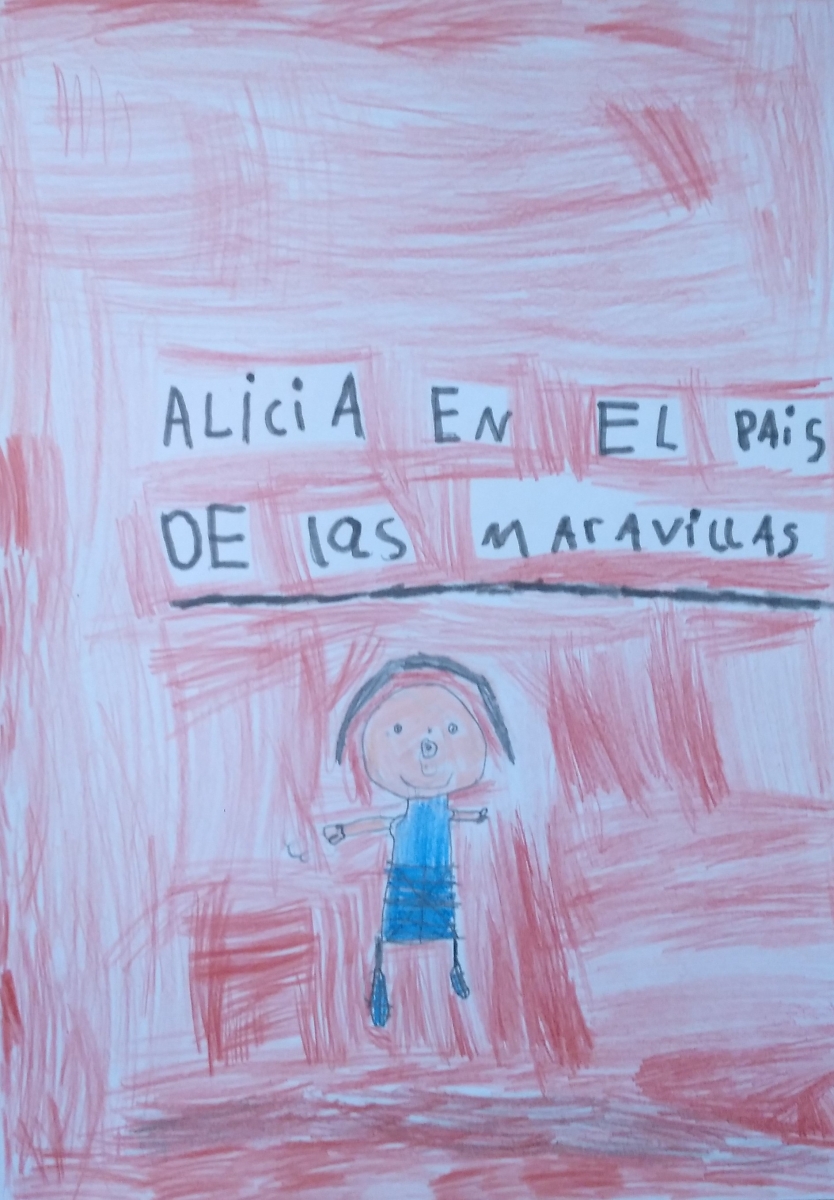 ALiciA EN EL PAiS
DE las MArAViLLAS